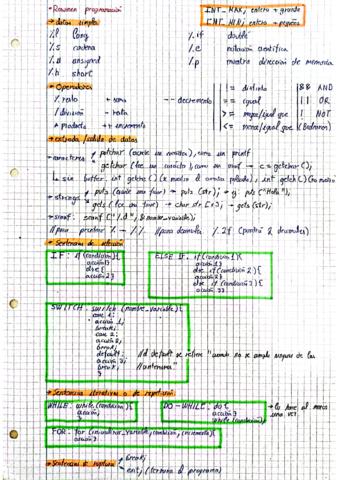 · Resumen programación
INT_MAX; entero + grande
INT_MIN; entero + pequeño
→ datos simples
%l long
%s cadena
%u unsigned
%h short
%lf double
%e notación científica
%p muestra dirección de memoria
→ Operadores
% resto
/ división
* producto
+ suma
- resta
++ incremento
-- decremento
!= distinto
== igual
>= mayor/igual que
<= menor/igual que
&& AND
|| OR
! NOT
(Booleanos)
→ entrada/salida de datos
→ caracteres
putchar (escribe un carácter), como un printf
getchar (lee un carácter) como un scanf → c = getchar();
↳ sin buffer, int getche()
int getch()
→ strings
puts (escribe una frase) → puts (str); → ej: puts ("Hola");
gets (lee una frase) → char str [x]; → gets (str);
→ scanf: scanf ("%d", &nombre_variable);
// para porcentaje % → %% // para decimales %.2f (pondrá 2 decimales)
→ Sentencias de selección
IF: if (condición){
acción 1}
else {
acción 2}
ELSE IF: if (condición 1){
acción 1}
else if (condición 2){
acción 2}
else if (condición 3){
acción 3}
SWITCH: switch (nombre_variable){
case 1:
acción 1;
break;
case 2:
acción 2;
break;
default:
acción 3;
break;
}
// default se refiere "cuando no se cumple ninguno de los
// anteriores"
→ Sentencias iterativas o de repetición
WHILE: while (condición){
acción;
}
DO-WHILE: do{
acción}
while (condición);
→ lo hace al menos
una vez
FOR: for (inicializar_variable; condición; incremento){
acción}
→ Sentencias de ruptura
break;
exit; (termina el programa)